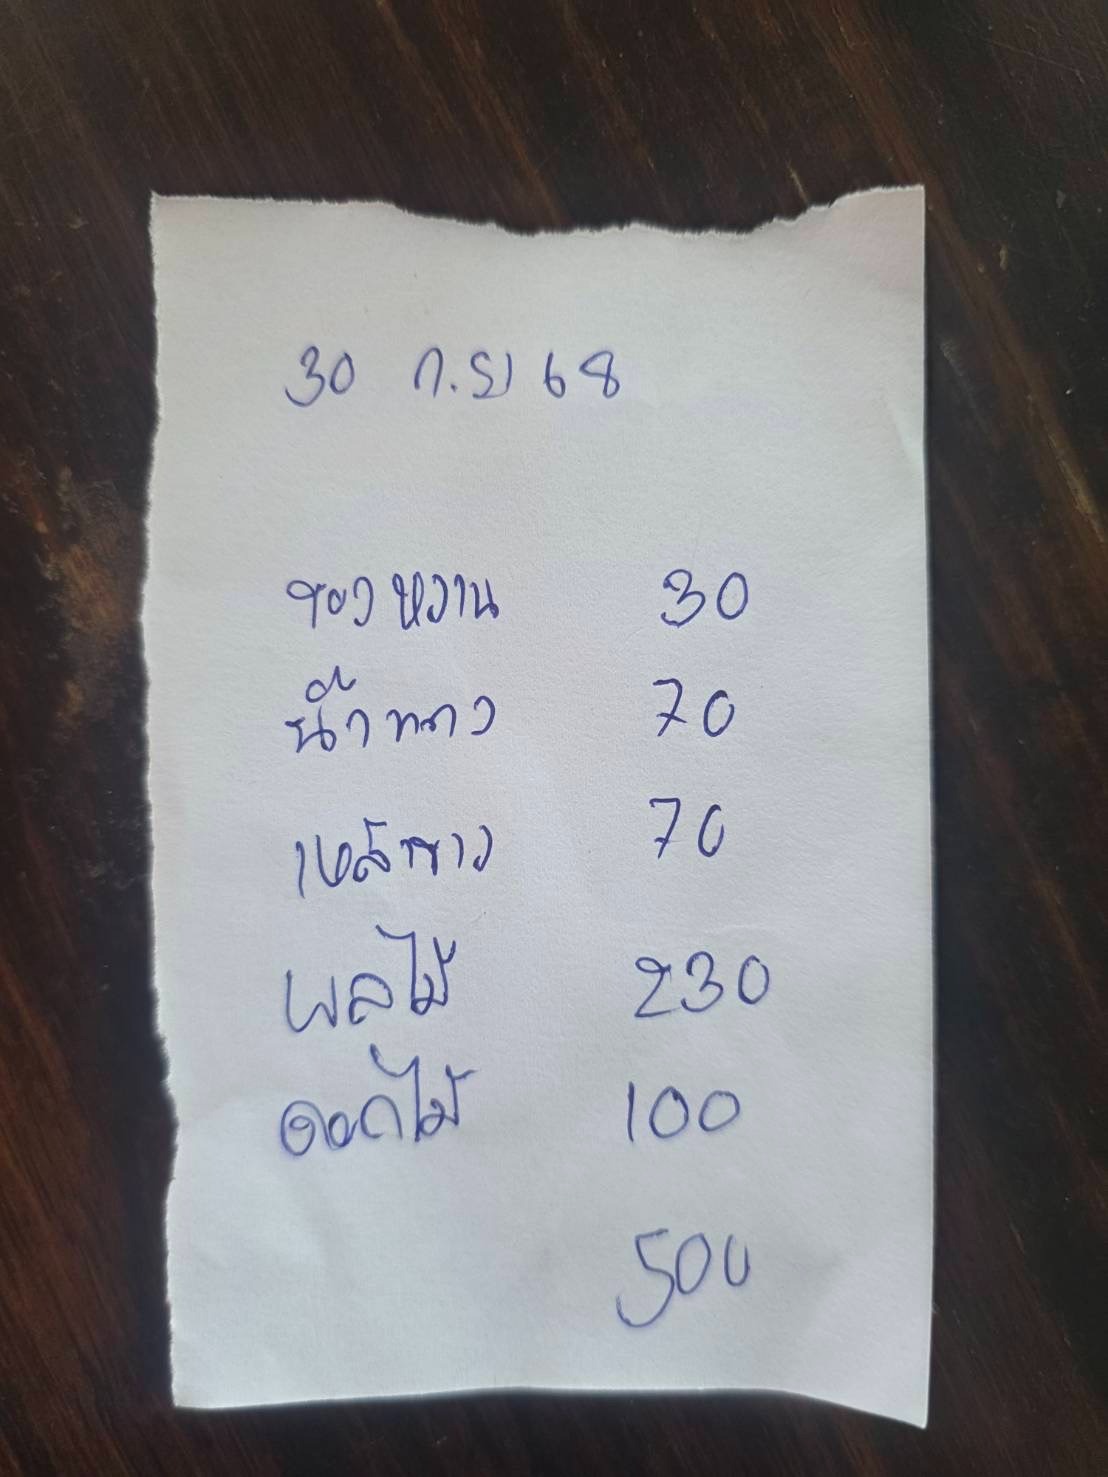 30 ก.ย 68
ของหวาน 30
น้ำทาง 70
เหล้าขาว 70
ผลไม้ 230
ดอกไม้ 100
500